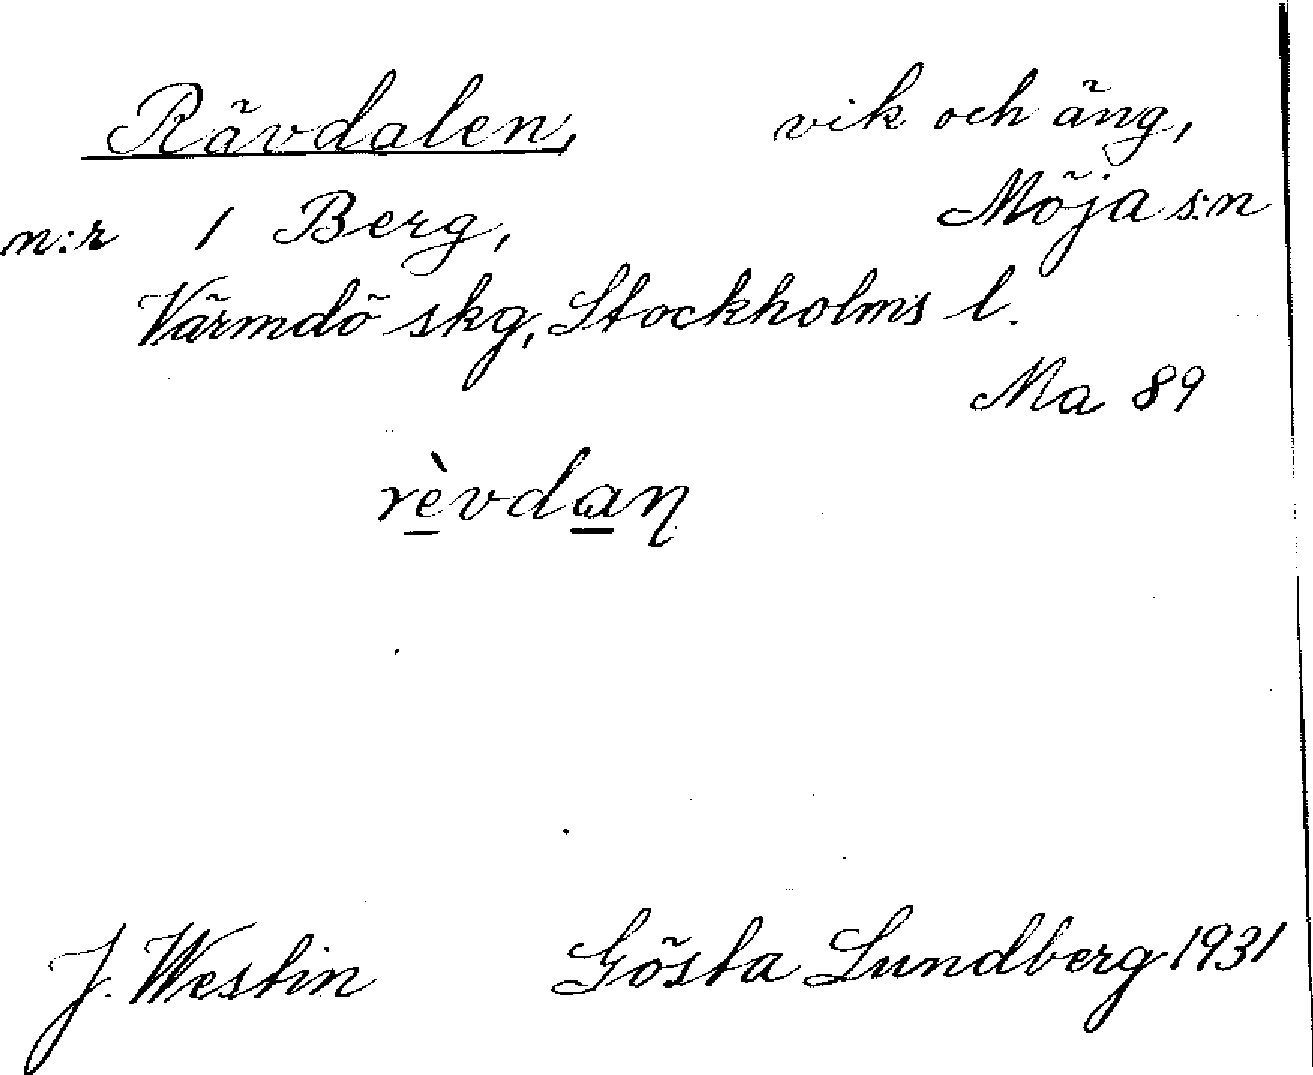 Rävdalen, vik och äng,
n:r 1 Berg, Möja s:n
Värmdö skg, Stockholms l.
Ma 89
rè̱vda̱ƞ
J. Westin Gösta Lundberg 1931